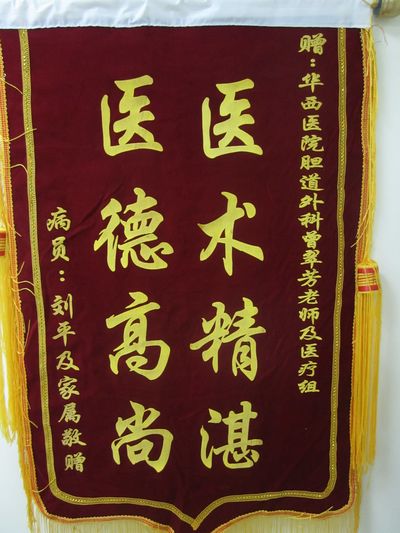 赠：华西医院胆道外科曾翠芳老师及医疗组
医术精湛
医德高尚
病员：刘平及家属敬赠